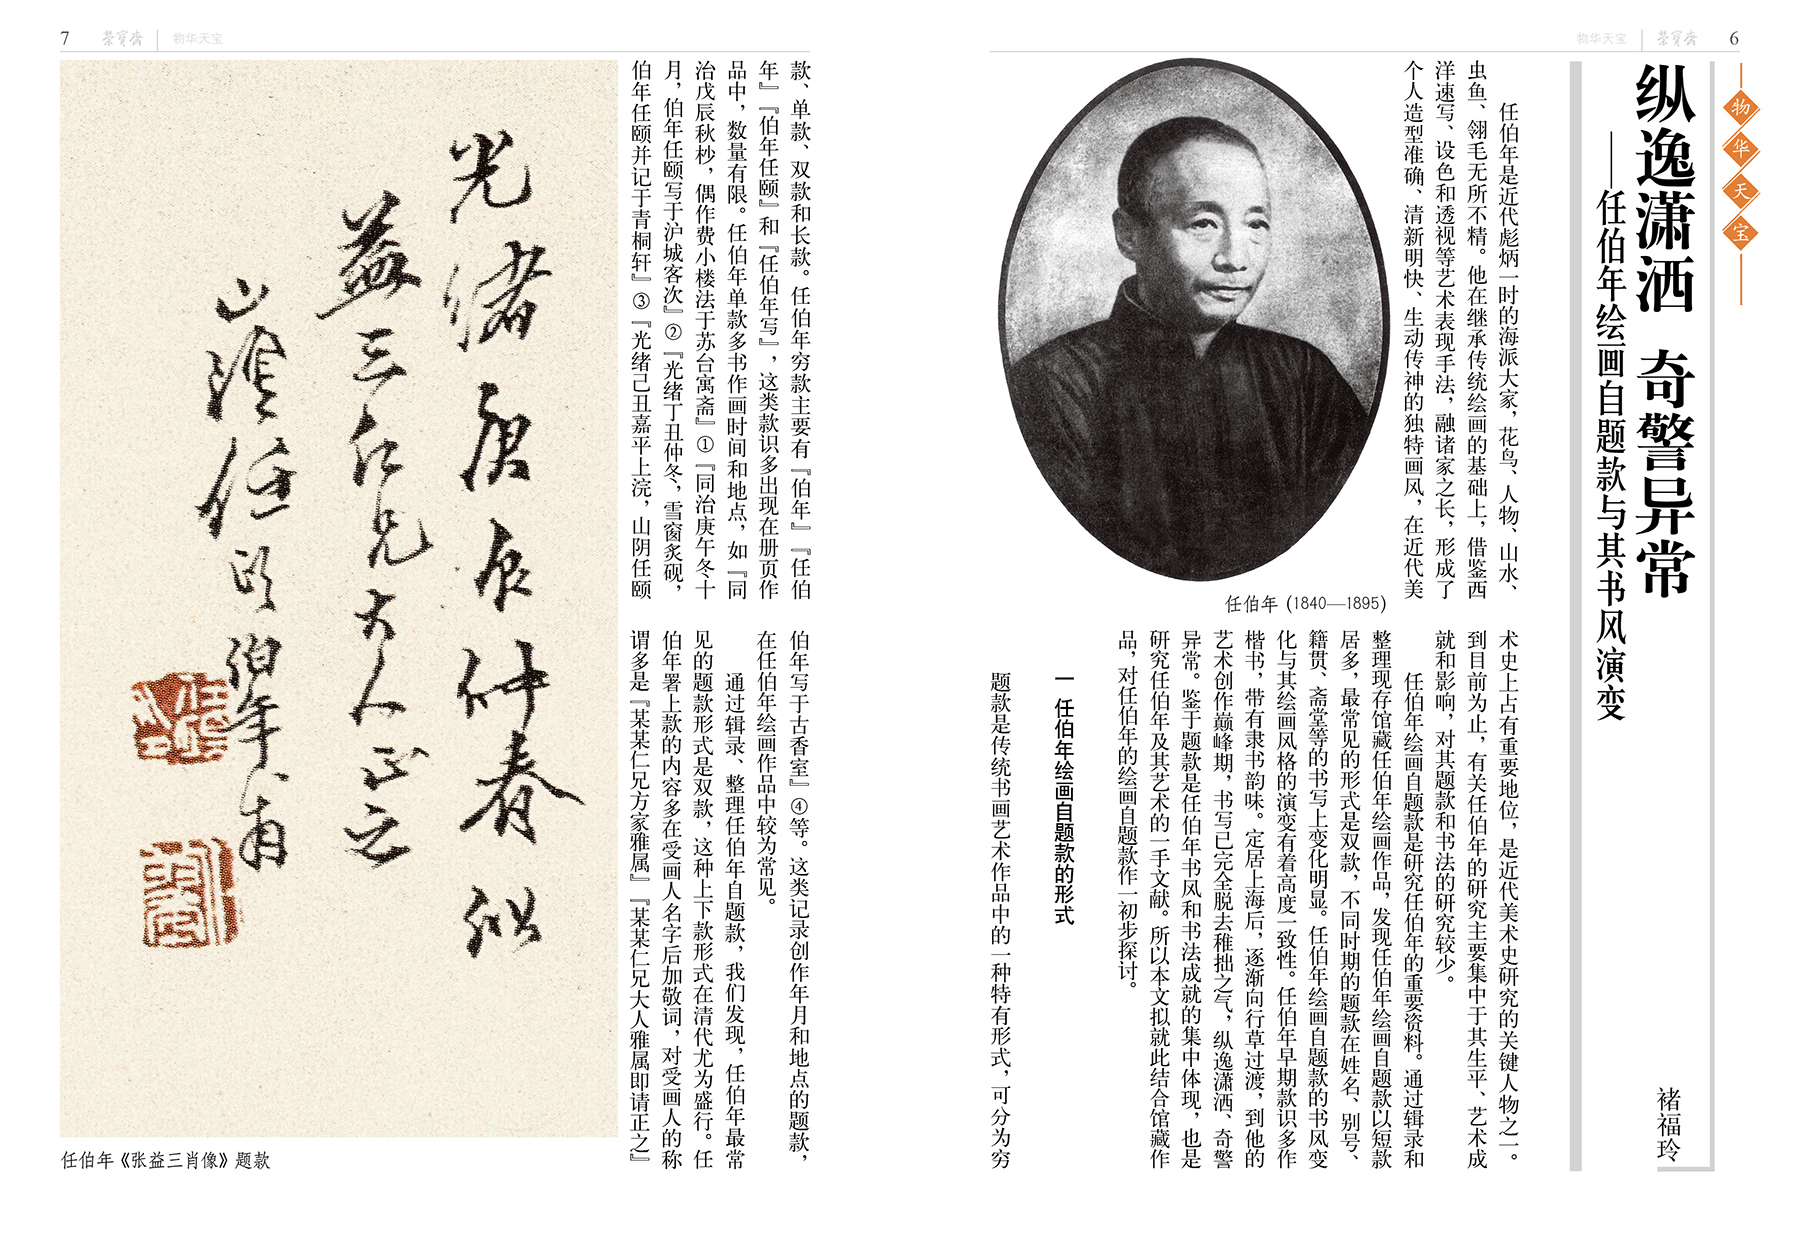 6
荣宝斋
物华天宝
物华天宝
纵逸潇洒 奇警异常
——任伯年绘画自题款与其书风演变
褚福玲
任伯年是近代彪炳一时的海派大家，花鸟、人物、山水、
虫鱼、翎毛无所不精。他在继承传统绘画的基础上，借鉴西
洋速写、设色和透视等艺术表现手法，融诸家之长，形成了
个人造型准确、清新明快、生动传神的独特画风，在近代美
任伯年 (1840—1895)
术史上占有重要地位，是近代美术史研究的关键人物之一。
到目前为止，有关任伯年的研究主要集中于其生平、艺术成
就和影响，对其题款和书法的研究较少。
任伯年绘画自题款是研究任伯年的重要资料。通过辑录和
整理现存馆藏任伯年绘画作品，发现任伯年绘画自题款以短款
居多，最常见的形式是双款，不同时期的题款在姓名、别号、
籍贯、斋堂等的书写上变化明显。任伯年绘画自题款的书风变
化与其绘画风格的演变有着高度一致性。任伯年早期款识多作
楷书，带有隶书韵味。定居上海后，逐渐向行草过渡，到他的
艺术创作巅峰期，书写已完全脱去稚拙之气，纵逸潇洒、奇警
异常。鉴于题款是任伯年书风和书法成就的集中体现，也是
研究任伯年及其艺术的一手文献。所以本文拟就此结合馆藏作
品，对任伯年的绘画自题款作一初步探讨。
一 任伯年绘画自题款的形式
题款是传统书画艺术作品中的一种特有形式，可分为穷
7
荣宝斋
物华天宝
款、单款、双款和长款。任伯年穷款主要有『伯年』『任伯
年』『伯年任颐』和『任伯年写』，这类款识多出现在册页作
品中，数量有限。任伯年单款多书作画时间和地点，如『同
治戊辰秋杪，偶作费小楼法于苏台寓斋』①『同治庚午冬十
月，伯年任颐写于沪城客次』②『光绪丁丑仲冬，雪窗炙砚，
伯年任颐并记于青桐轩』③『光绪己丑嘉平上浣，山阴任颐
伯年写于古香室』④等。这类记录创作年月和地点的题款，
在任伯年绘画作品中较为常见。
通过辑录、整理任伯年自题款，我们发现，任伯年最常
见的题款形式是双款，这种上下款形式在清代尤为盛行。任
伯年署上款的内容多在受画人名字后加敬词，对受画人的称
谓多是『某某仁兄方家雅属』『某某仁兄大人雅属即请正之』
光绪庚辰仲春似
益三仁兄大人正之
山阴任颐伯年甫
任伯年《张益三肖像》题款